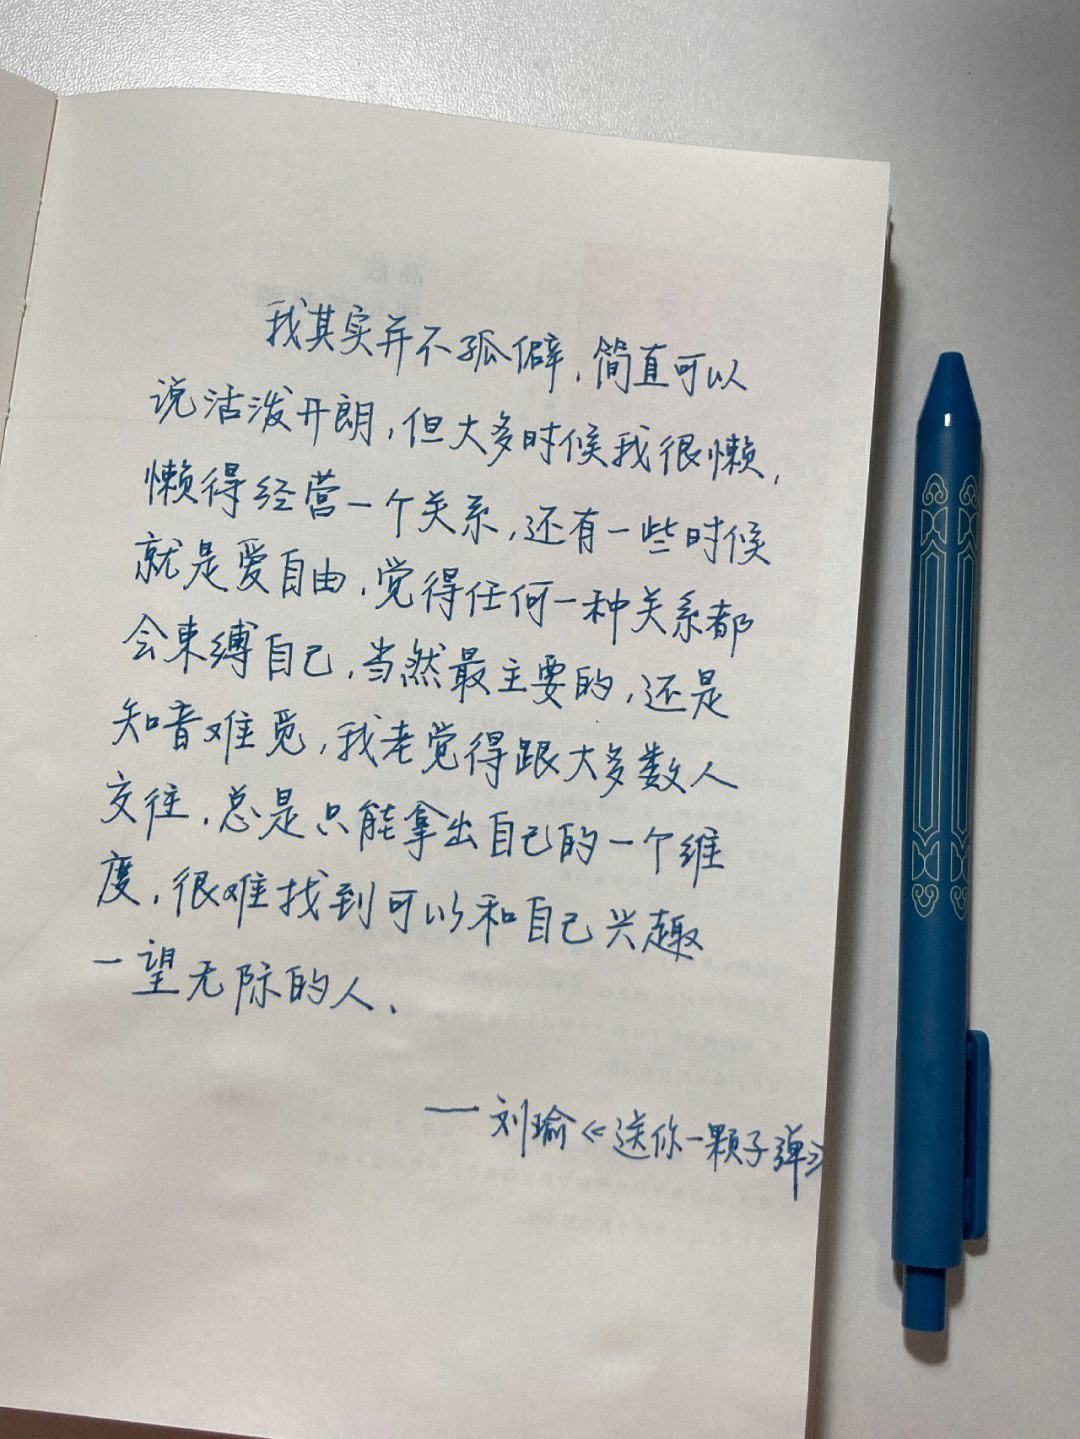 我其实并不孤僻，简直可以
说活泼开朗，但大多时候我很懒，
懒得经营一个关系，还有一些时候
就是爱自由，觉得任何一种关系都
会束缚自己，当然最主要的，还是
知音难觅，我老觉得跟大多数人
交往，总是只能拿出自己的一个维
度，很难找到可以和自己兴趣
一望无际的人、
——刘瑜《送你一颗子弹》